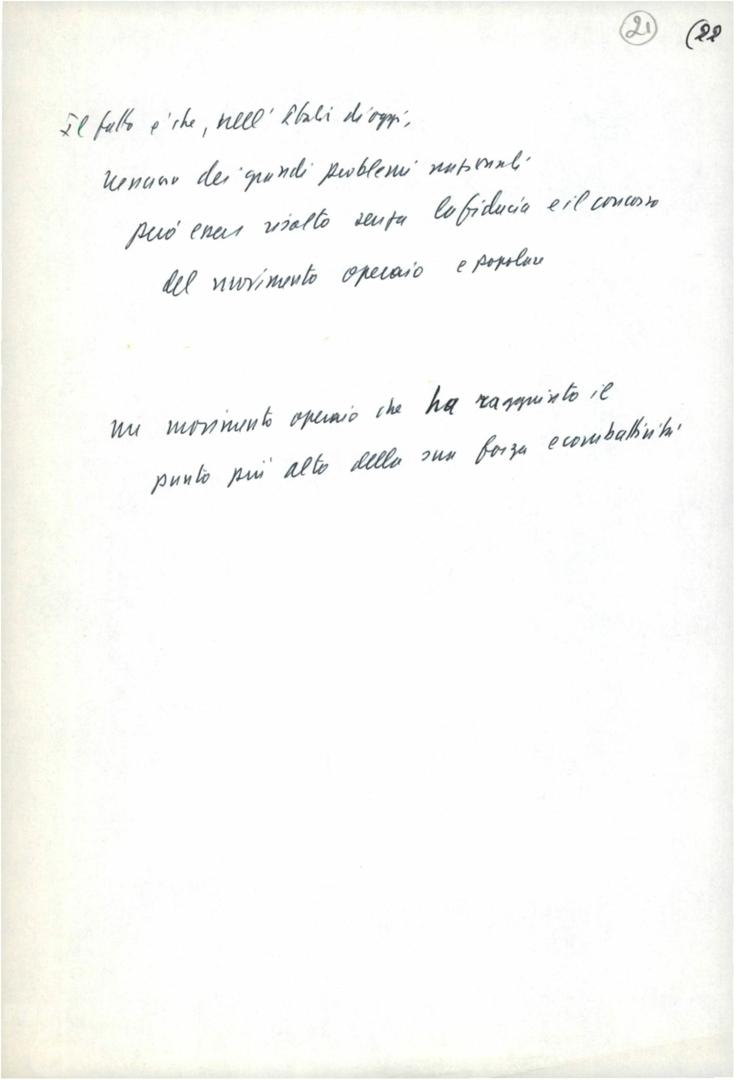 21 (22
Il fatto è che, nell'Italia di oggi,
nessuno dei grandi problemi nazionali
può essere risolto senza la fiducia e il concorso
del movimento operaio e popolare
un movimento operaio che ha raggiunto il
punto più alto della sua forza e combattività